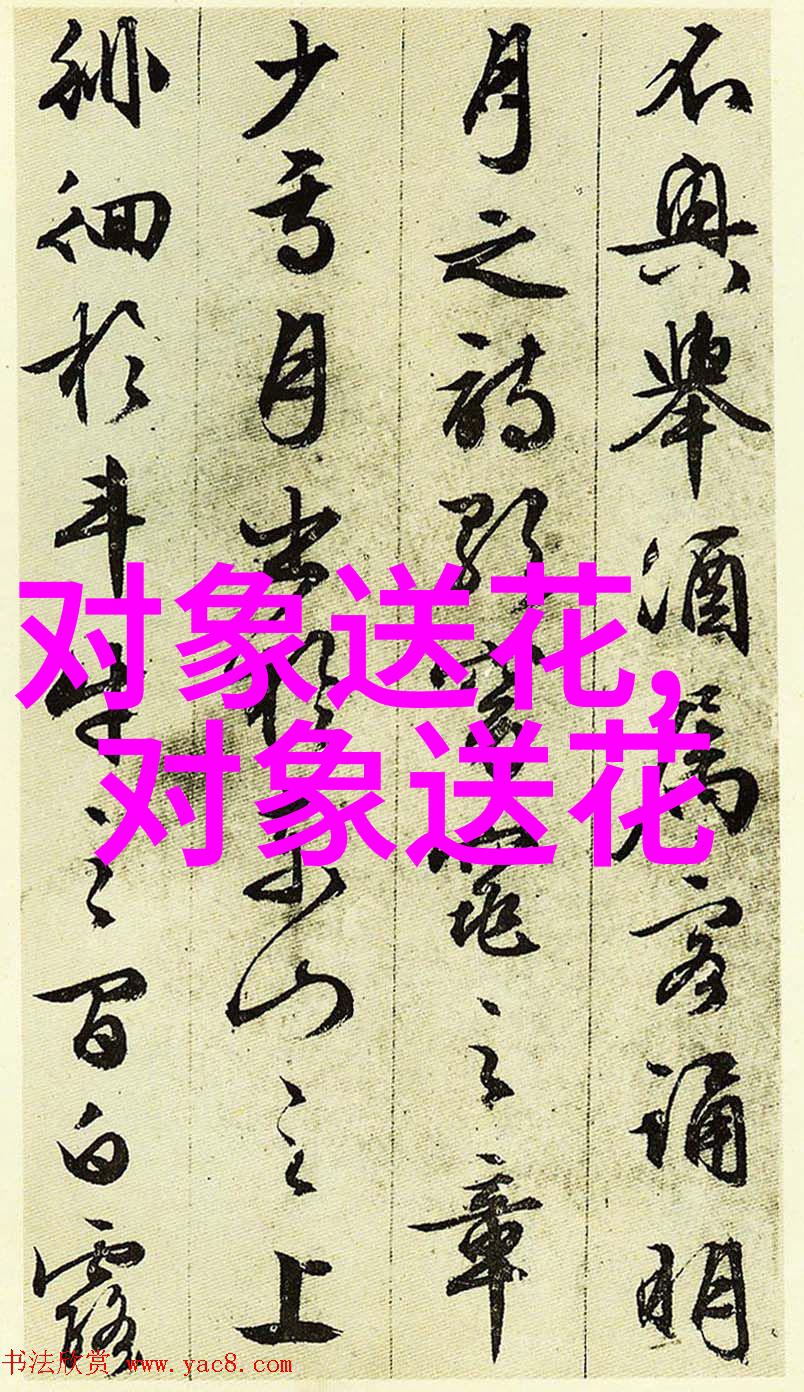 不興舉酒屬客誦明
月之詩歌窈窕之章
少焉月出於東山之上
徘徊於斗牛之間白露
对象送花,
对象送花
书法欣赏 www.yac8.com